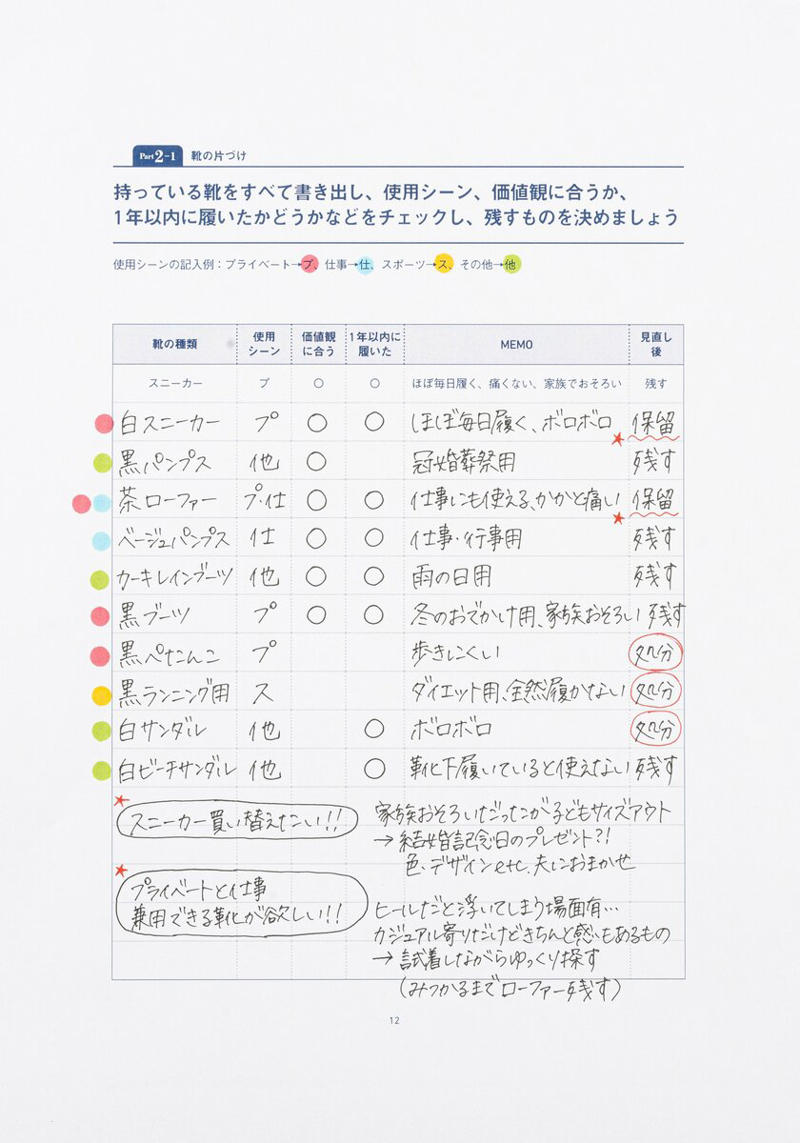 Part 2-1 靴の片づけ
持っている靴をすべて書き出し、使用シーン、価値観に合うか、
1年以内に履いたかどうかなどをチェックし、残すものを決めましょう
使用シーンの記入例：プライベート→プ、仕事→仕、スポーツ→ス、その他→他
靴の種類 使用シーン 価値観に合う 1年以内に履いた MEMO 見直し後
スニーカー プ ○ ○ ほぼ毎日履く、痛くない、家族でおそろい 残す
白スニーカー プ ○ ○ ほぼ毎日履く、ボロボロ 保留
黒パンプス 他 ○ 冠婚葬祭用 残す
茶ローファー プ・仕 ○ ○ 仕事にも使える、かかと痛い 保留
ベージュパンプス 仕 ○ ○ 仕事・行事用 残す
カーキレインブーツ 他 ○ ○ 雨の日用 残す
黒ブーツ プ ○ ○ 冬のおでかけ用、家族おそろい 残す
黒ぺたんこ プ 歩きにくい 処分
黒ランニング用 ス ダイエット用、全然履かない 処分
白サンダル 他 ○ ボロボロ 処分
白ビーチサンダル 他 ○ 靴下履いていると使えない 残す
★スニーカー買い替えたい!!
家族おそろいだったが子どもサイズアウト
→結婚記念日のプレゼント?!
色、デザインetc.夫におまかせ
★プライベートと仕事
兼用できる靴が欲しい!!
ヒールだと浮いてしまう場面有…
カジュアル寄りだけどきちんと感もあるもの
→試着しながらゆっくり探す
(みつかるまでローファー残す)
12